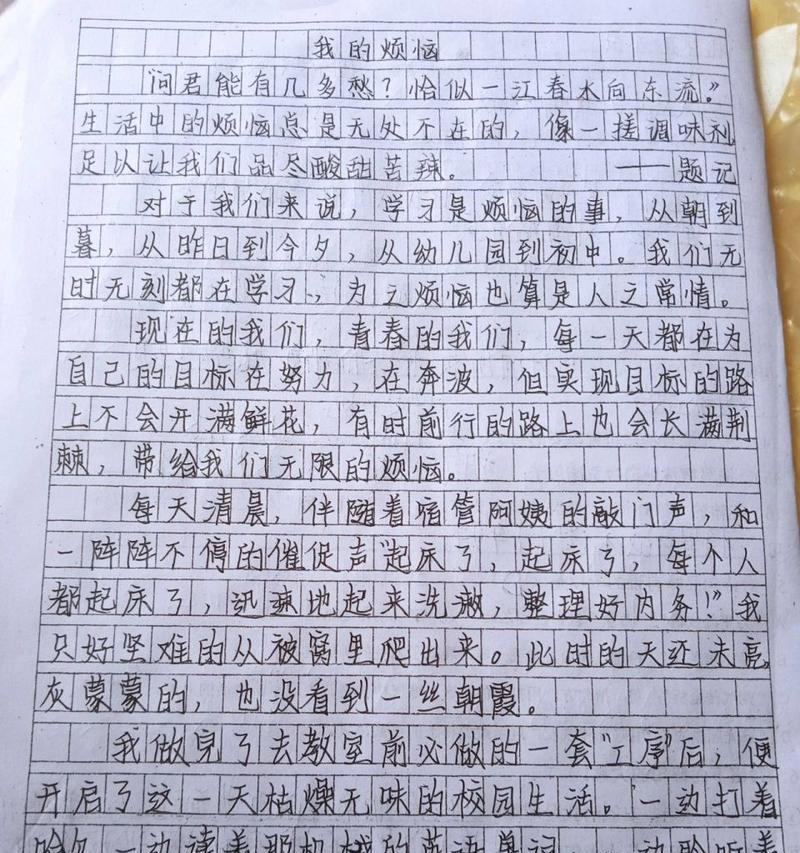 我的烦恼
“问君能有几多愁？恰似一江春水向东流。”
生活中的烦恼总是无处不在的，像一搓调味剂
足以让我们品尽酸甜苦辣。 ——题记
对于我们来说，学习是烦恼的事，从朝到
暮，从昨日到今夕，从幼儿园到初中。我们无
时无刻都在学习，为之烦恼也算是人之常情。
现在的我们，青春的我们，每一天都在为
自己的目标在努力，在奔波，但实现目标的路
上不会开满鲜花，有时前行的路上也会长满荆
棘，带给我们无限的烦恼。
每天清晨，伴随着宿管阿姨的敲门声，和
一阵阵不停的催促声“起床了，起床了，每个人
都起床了，迅速地起来洗漱，整理好内务！”我
只好坚难的从被窝里爬出来。此时的天还未亮，
灰蒙蒙的，也没看到一丝朝霞。
我做完了去教室前必做的一套“工序”后，便
开启了这一天枯燥无味的校园生活。一边打着
哈欠一边读着那机械的英语单词 一边聆听着